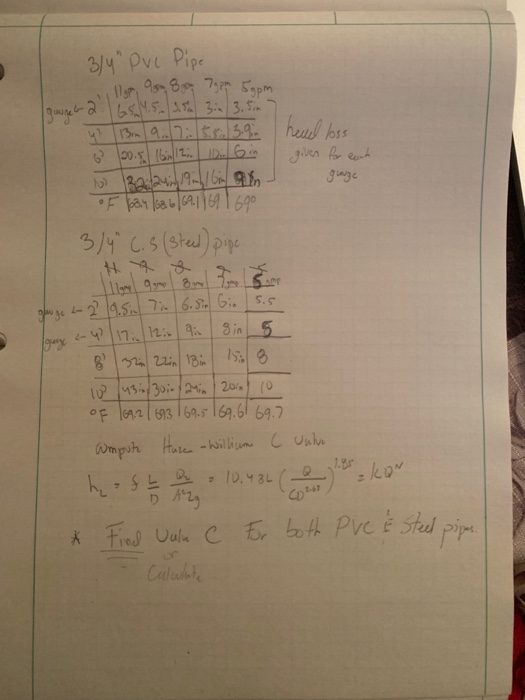 3/4" PVC Pipe
11gpm 9gpm 8gpm 7gpm 5gpm
gauge ← 2' 6.5in 4.5in 3.5in 3in 3.5in
4' 13in 9in 7in 5.5in 3.9in
6' 20.5in 16in 12in 10in 6in
10' 32in 24in 19in 16in
°F 68.4 68.6 69.1 69 69°
head loss
given for each
gauge
3/4" C.S (steel) pipe
11 9 8 7 5
11gpm 9gpm 8gpm 7gpm 5gpm
gauge ← 2' 9.5in 7in 6.5in 6in 5.5
gauge ← 4' 17in 12in 9in 8in 5
8' 32in 22in 18in 15in 8
10' 43in 30in 24in 20in 10
°F 69.2 693 69.5 69.6 69.7
compute Haze-william C value
hL = f L/D Q²/A²2g = 10.43L (Q/CD^2.63)^1.85 = kQ^N
* Find Valu C For both PVC & Steel pipes
or
Calculate